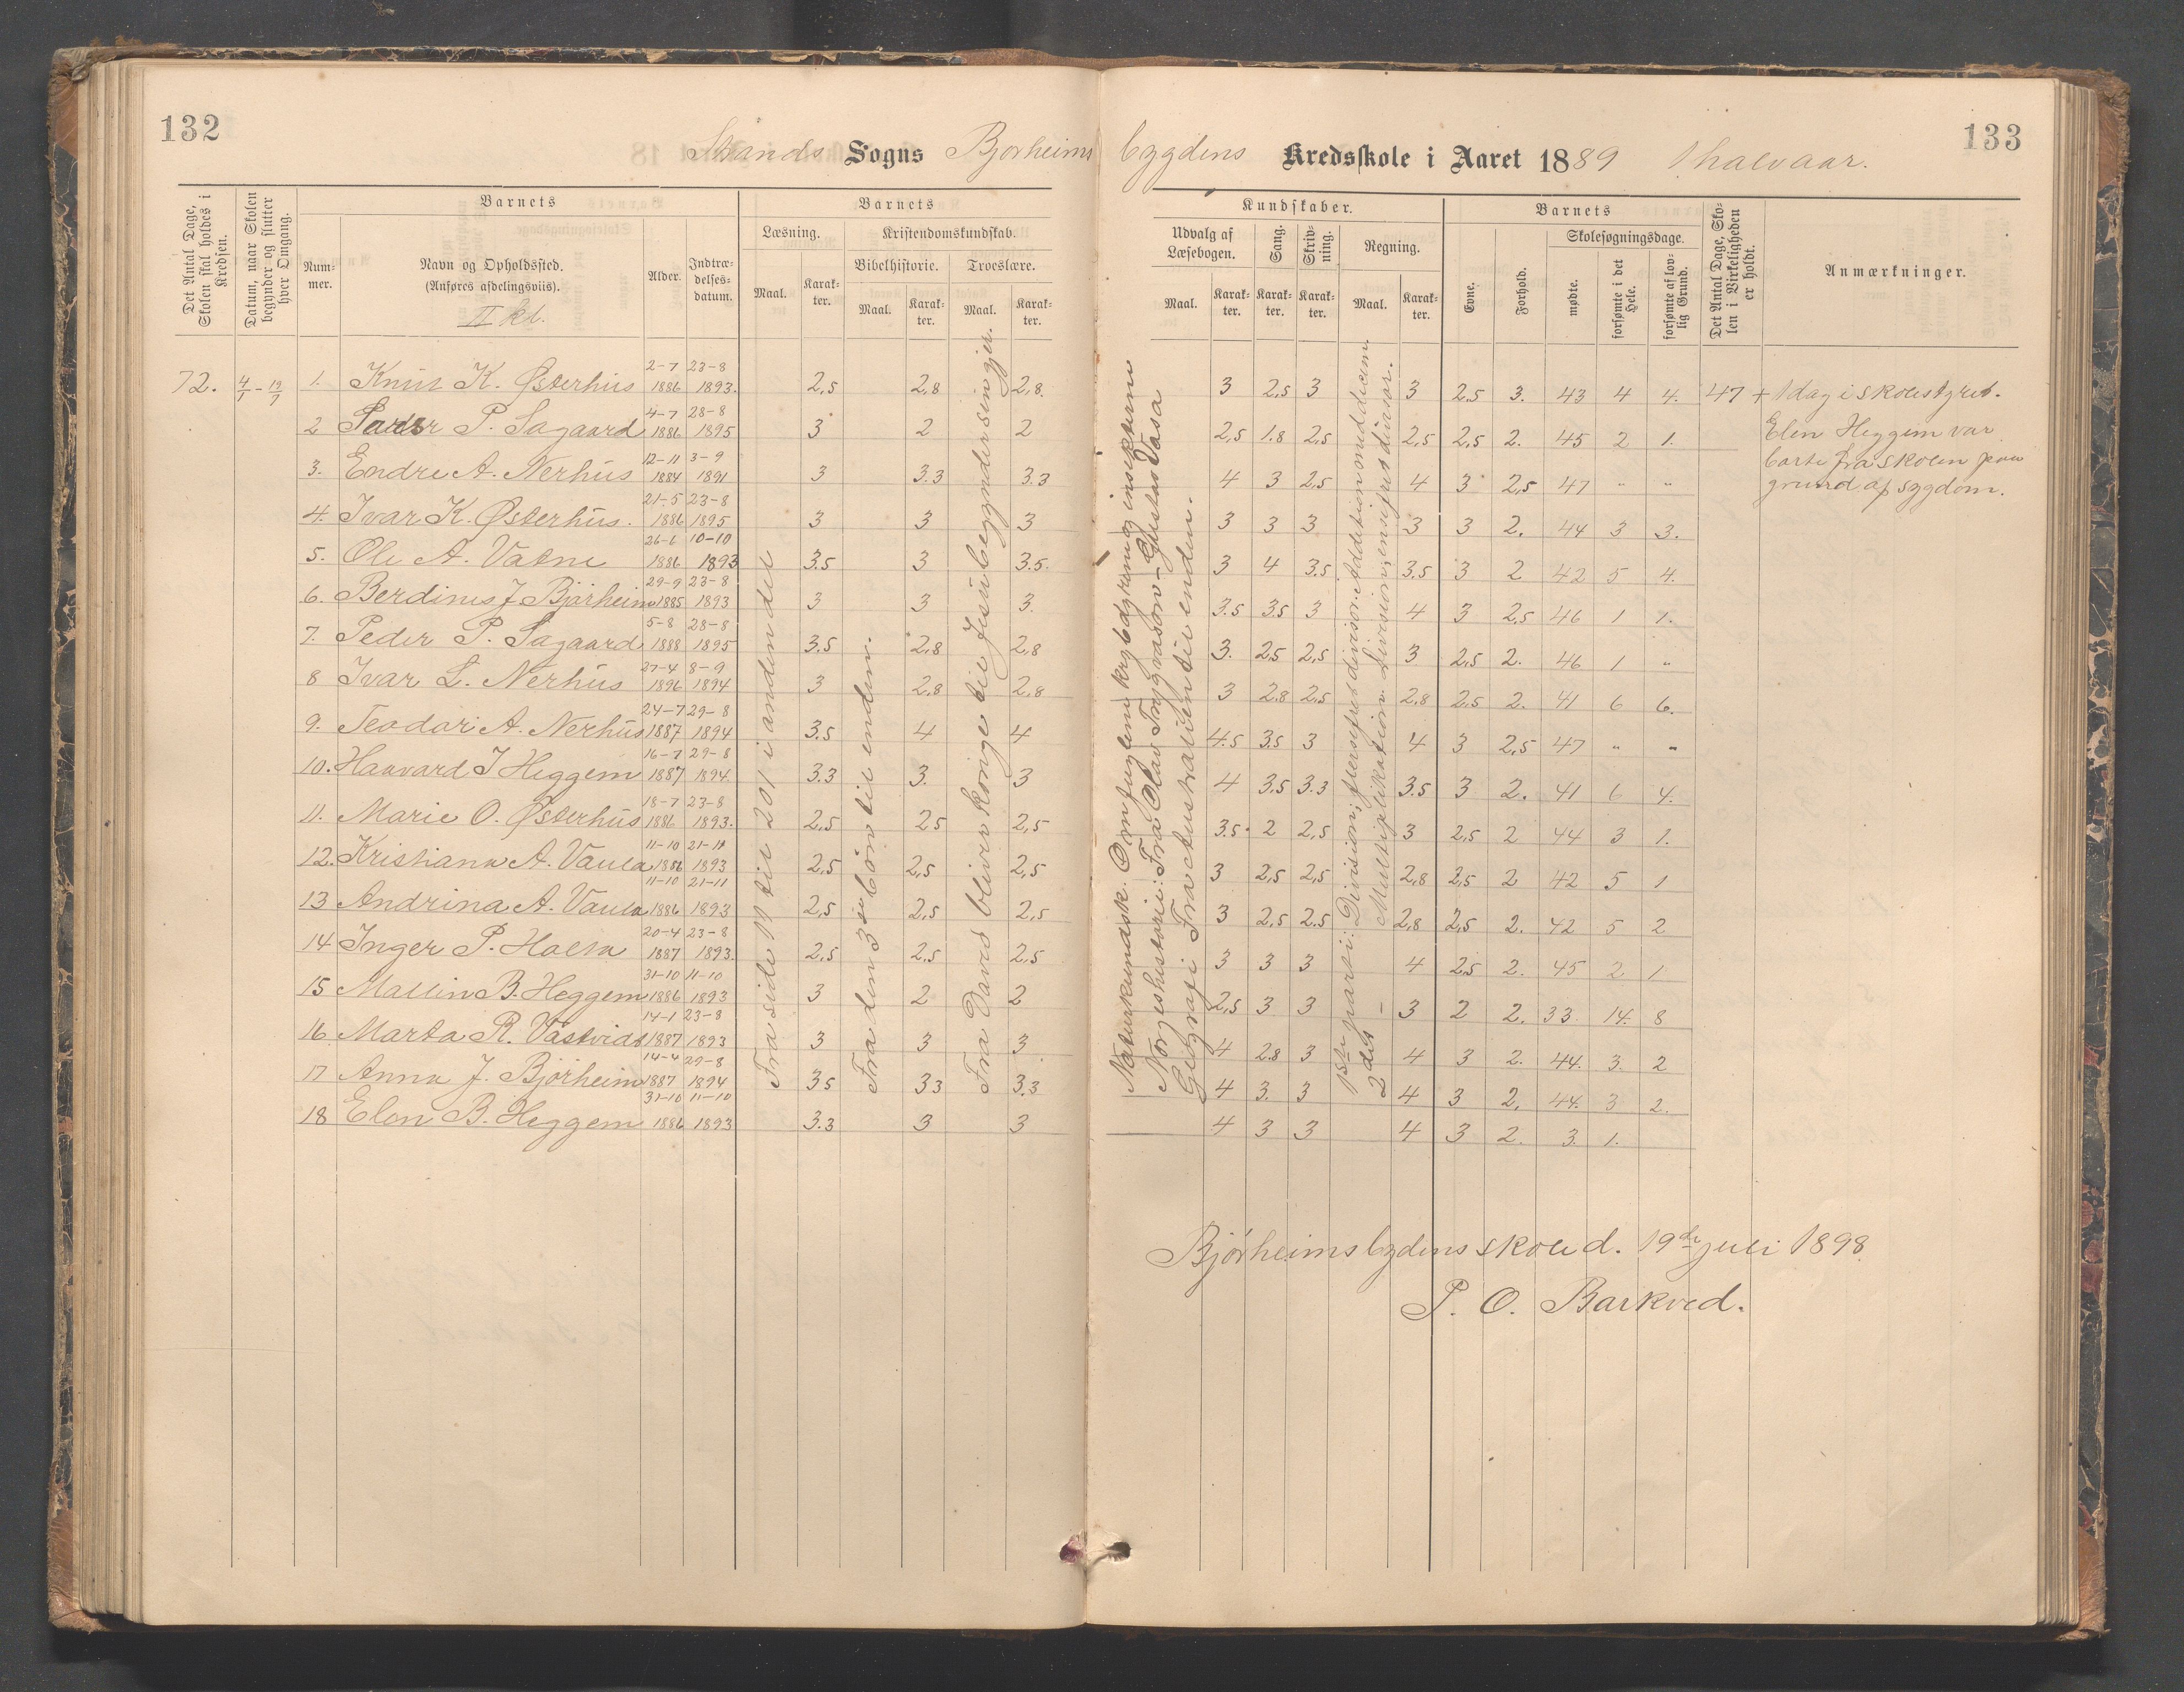 132
Strands Sogns Bjørheims
bygdens Kredsskole i Aaret 1889 1 halvaar.
133
Det Antal Dage, Skolen skal holdes i Kredsen.
Datum, naar Skolen begynder og slutter hver Omgang.
Barnets
Nummer.
Navn og Opholdssted.
(Anføres afdelingsviis).
II kl.
Alder.
Indtrædelses-datum.
Barnets
Læsning.
Maal.
Karakter.
Kristendomskundskab.
Bibelhistorie.
Maal.
Karakter.
Troeslære.
Maal.
Karakter.
Kundskaber.
Udvalg af Læsebogen.
Maal.
Karakter.
Sang.
Karakter.
Skrivning.
Karakter.
Regning.
Maal.
Karakter.
Barnets
Evne.
Forhold.
Skolesøgningsdage.
mødte.
forsømte i det Hele.
forsømte af lovlig Grund.
Det Antal Dage, Skolen i Virkeligheden er holdt.
Anmærkninger.
72. 4/1 - 19/7 1. Knut K. Østerhus 2-7 1886 23-8 1893. 2,5 2,8 2,8. 3 2,5 3 3 2,5 3. 43 4 4. 47 + 1 dag i skolestyret.
2 P. Sagaard 4-7 1886 28-8 1895 3 2 2 2,5 1.8 2,5 2,5 2,5 2. 45 2 1.
3. Endre A. Nerhus 12-11 1884 3-9 1891 3 3.3 3.3 4 3 2,5 4 3 2,5 47 " "
4. Ivar K. Østerhus. 21-5 1886 23-8 1895 3 3 3 3 3 3 3 3 2. 44 3 3.
5. Ole A. Vatne 26-6 1886 10-10 1893 3.5 3 3.5. 3 4 3.5 3.5 3 2 42 5 4.
6. Berdines J. Bjørheim 29-9 1885 23-8 1893 3 3 3. 3.5 3.5 3 4 3 2,5 46 1 1.
7. Peder P. Sagaard 5-8 1888 28-8 1895 3.5 2,8 2,8 3. 2,5 2,5 3 2,5 2. 46 1 "
8 Ivar L. Nerhus 27-4 1896 8-9 1894 3 2.8 2,8 3 2.8 2,5 2,8 2,5 2. 41 6 6.
9. Teodor A. Nerhus 24-7 1887 29-8 1894 3.5 4 4 4.5 3.5 3 4 3 2,5 47 " "
10. Haavard J Heggem 16-7 1887 29-8 1894. 3.3 3. 3 4 3.5 3.3 3.5 3 2. 41 6 4.
11. Marie O. Østerhus 18-7 1886 23-8 1893. 2,5 2,5 2,5 3.5. 2 2,5 3 2,5 2 44 3 1.
12. Kristiana A. Vaula 11-10 1886 21-11 1893 2,5 2,5 2,5 3 2,5 2,5 2,8 2,5 2 42 5 1
13 Andrina A. Vaula 11-10 1886 21-11 1893 2,5 2,5 2,5 3 2,5 2.5 2,8 2,5 2. 42 5 2
14 Inger P. Holta 20-4 1887 23-8 1893. 2,5 2,5 2,5 3 3 3 4 2,5 2. 45 2 1
15 Mallin B. Heggem 31-10 1886 11-10 1893 3 2 2 2,5 3 3 3 2 2. 33 14. 8
16. Marta R. Vastvidt 14-1 1887 23-8 1893 3 3 3 4 2.8 3 4 3 2. 44. 3. 2
17 Anna J. Bjørheim 14-4 1887 29-8 1894 3,5 3,3 3.3 4 3. 3 4 3 2. 44. 3 2.
18 Elen B. Heggem 31-10 1886 11-10 1893 3.3 3 3 4 3 3 4 3 2. 3. 1.
Fra side 99 til 201 i anden del
Fra den 3die bøn til enden.
Fra David bliver konge til Jesu begyndersin gjer.
Naturkundsk. Om fuglene krybdyrene og insekterne
Norgeshistorie: Fra Olav Trygvason - Gustav Vasa
Geografi Fra Australien til enden.
1ste parti: Division; flersifret divisor. Addition med decim.
2det - Multiplikation. Division; ensifret divisor.
Elen Heggem var
borte fra skolen paa
grund af sygdom.
Bjørheimsbygdens skole d. 19de juli 1898.
P. O. Barkved.